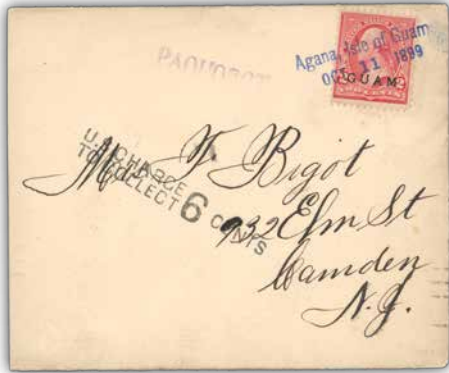 Agana, Isle of Guam
OCT 11 1899
GUAM
PAQUOBOT
U.S. CHARGE
TO COLLECT 6 CENTS
Mr. F. Bigot
932 Elm St
Camden
N.J.